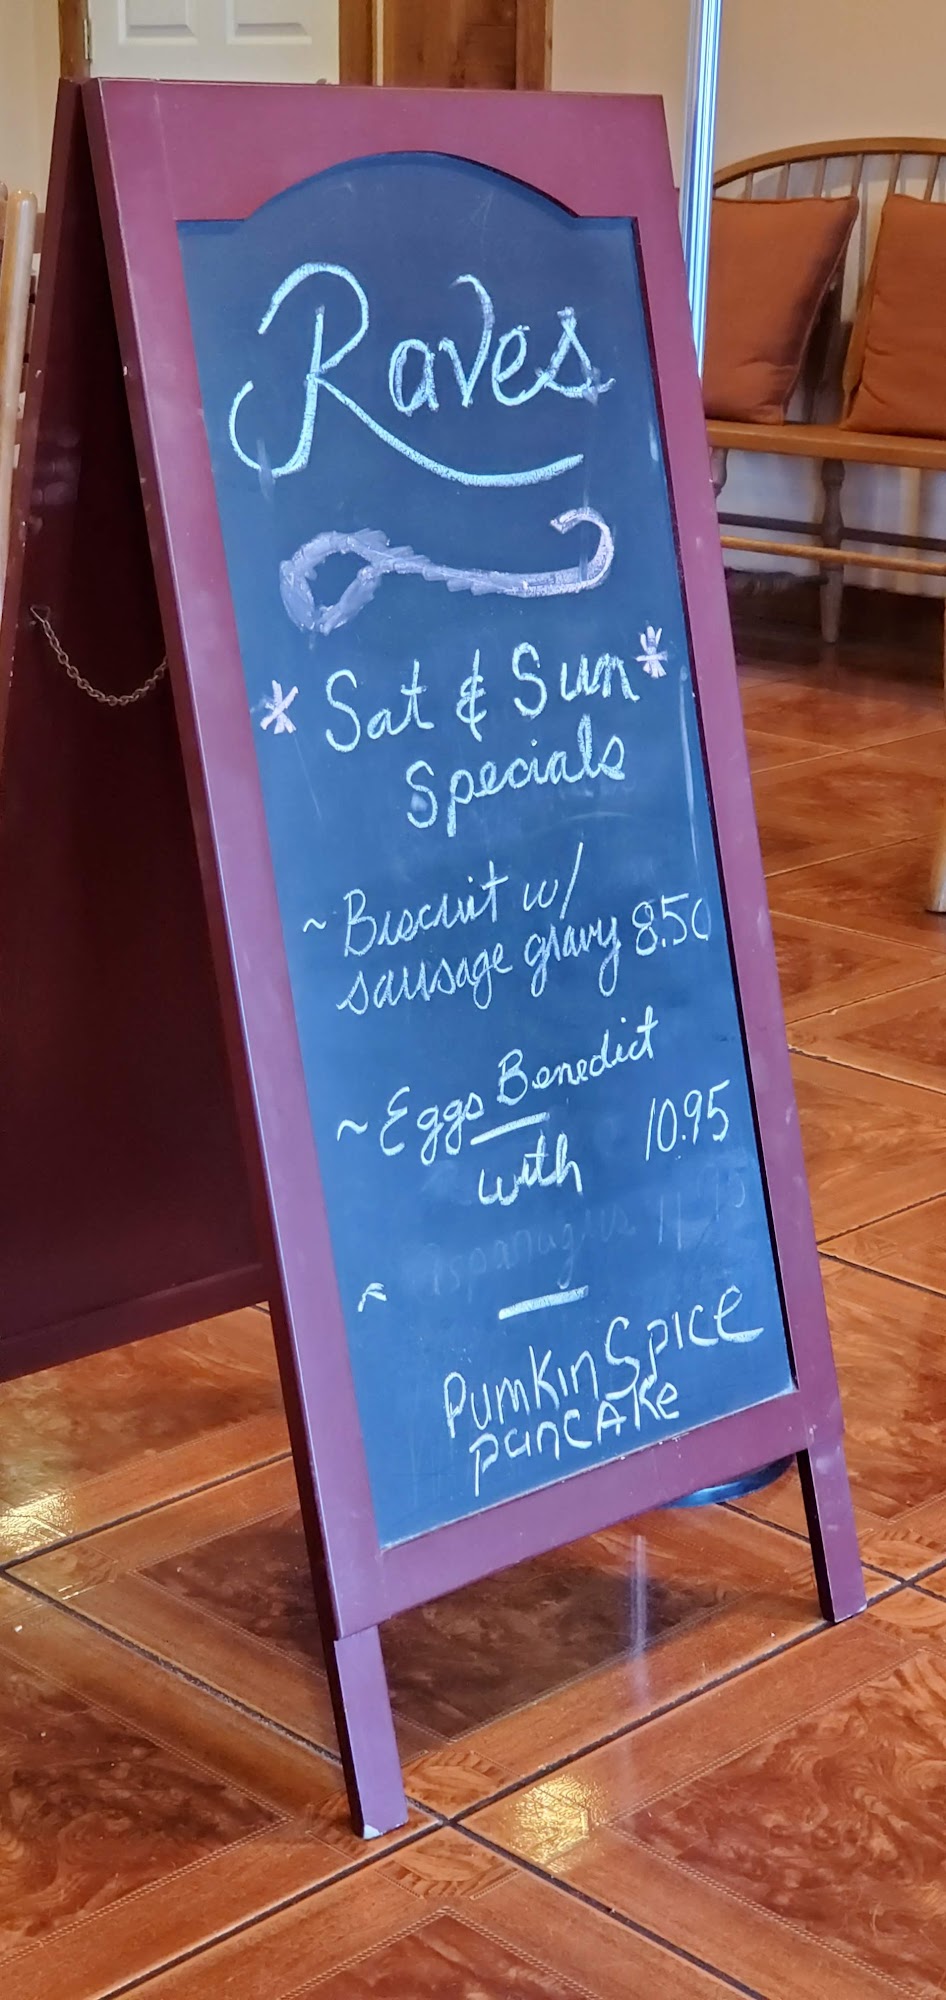 Raves
* Sat & Sun *
Specials
~ Biscuit w/
sausage gravy 8.50
~ Eggs Benedict
with 10.95
Asparagus
Pumkin Spice
pancake